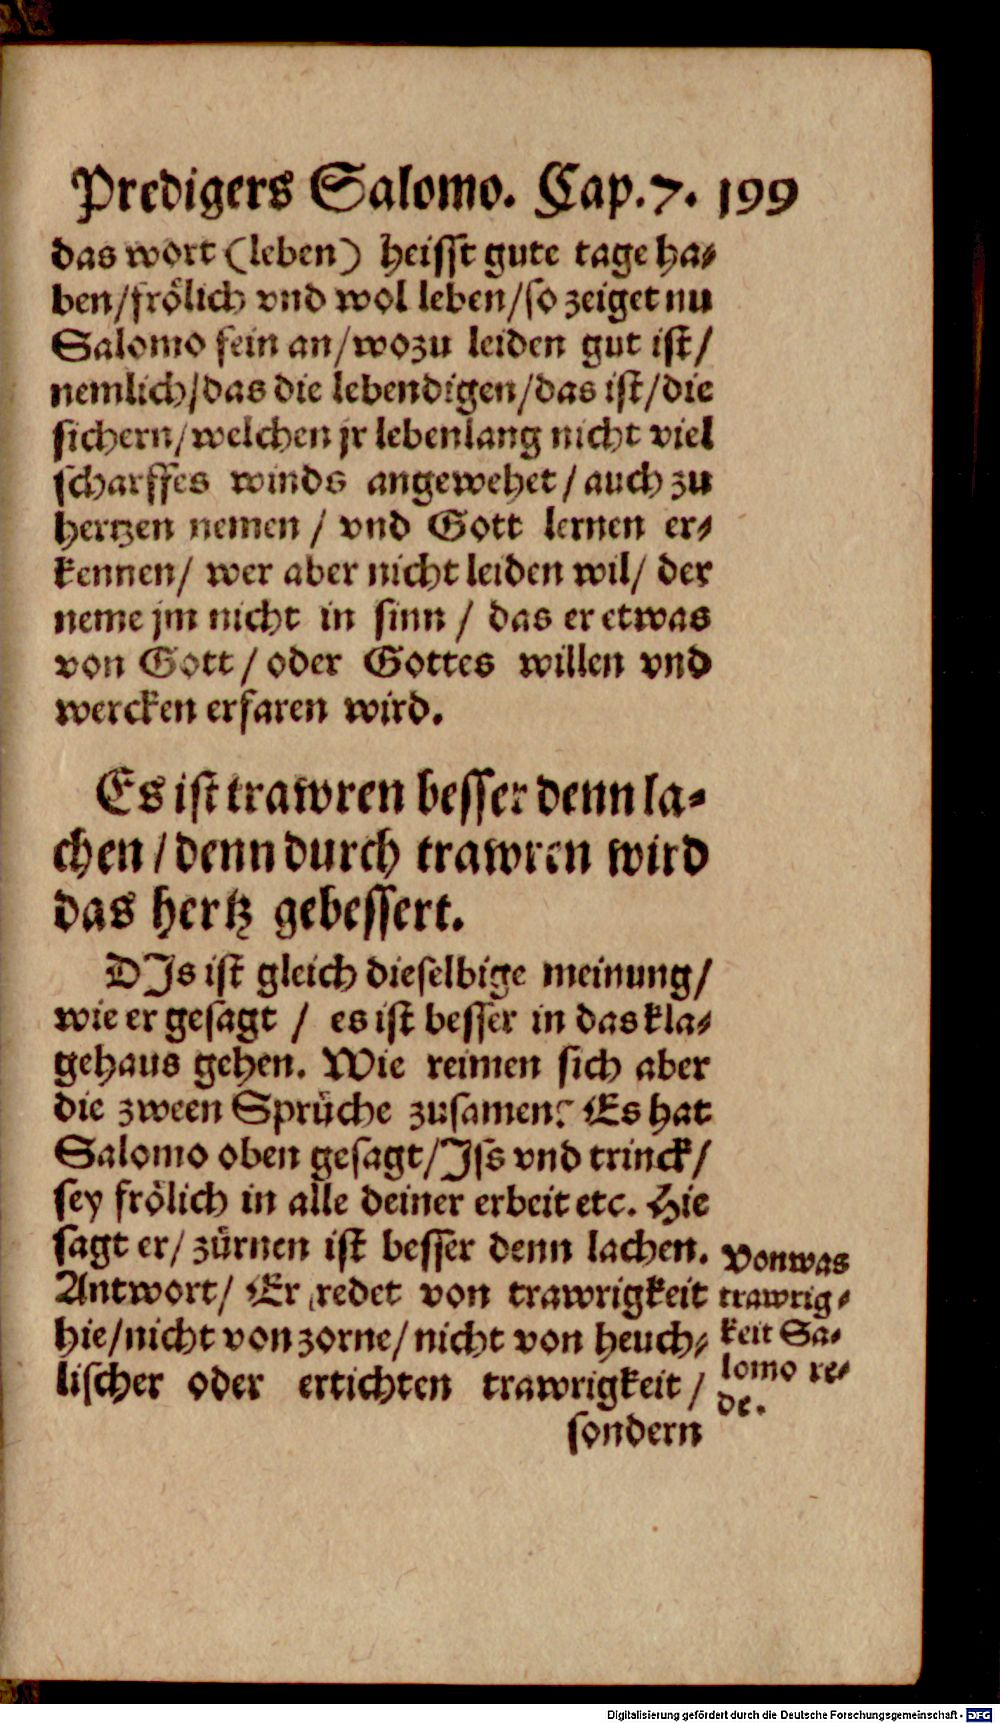 Predigers Salomo. Cap. 7. 199
das wort (leben) heisst gute tage ha⸗
ben/frölich vnd wol leben/so zeiget nu
Salomo fein an/wozu leiden gut ist/
nemlich/das die lebendigen/das ist/die
sichern/welchen jr lebenlang nicht viel
scharffes winds angewehet/auch zu
hertzen nemen/ vnd Gott lernen er⸗
kennen/ wer aber nicht leiden wil/ der
neme jm nicht in sinn/ das er etwas
von Gott/ oder Gottes willen vnd
wercken erfaren wird.
Es ist trawren besser denn la⸗
chen/denn durch trawren wird
das hertz gebessert.
DJs ist gleich dieselbige meinung/
wie er gesagt / es ist besser in das kla⸗
gehaus gehen. Wie reimen sich aber
die zween Sprüche zusamen? Es hat
Salomo oben gesagt/Jss vnd trinck/
sey frölich in alle deiner erbeit etc. Hie
sagt er/ zürnen ist besser denn lachen.
Antwort/ Er redet von trawrigkeit
hie/nicht von zorne/nicht von heuch⸗
lischer oder ertichten trawrigkeit/
sondern
Von was
trawrig⸗
keit Sa⸗
lomo re⸗
de.
Digitalisierung gefördert durch die Deutsche Forschungsgemeinschaft - DFG